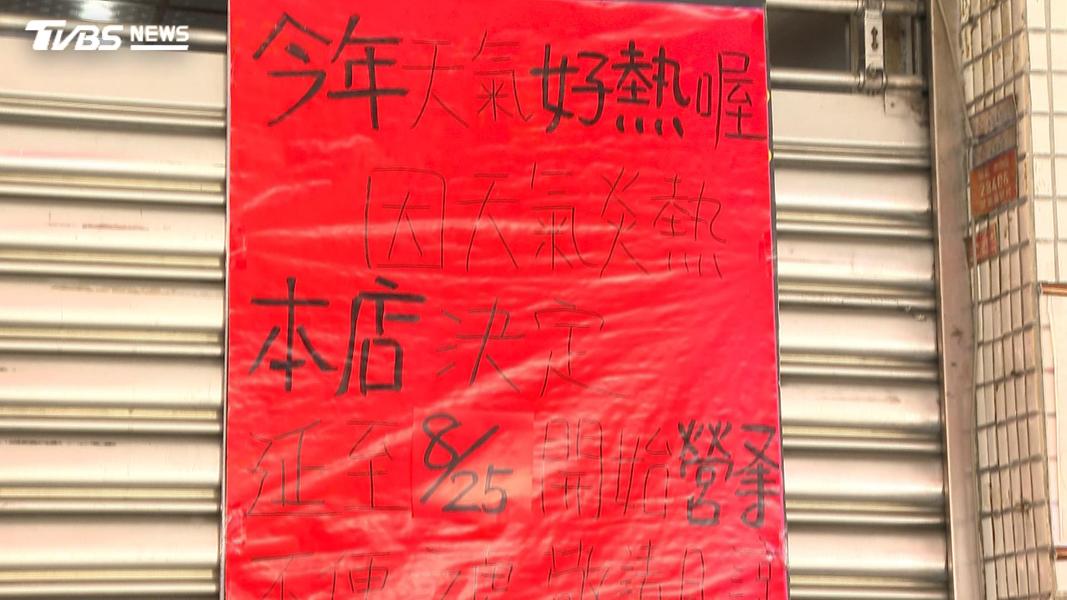 TVBS NEWS
今年天氣好熱喔
因天氣炎熱
本店決定
延至8/25開始營業
不便之處 敬請見諒